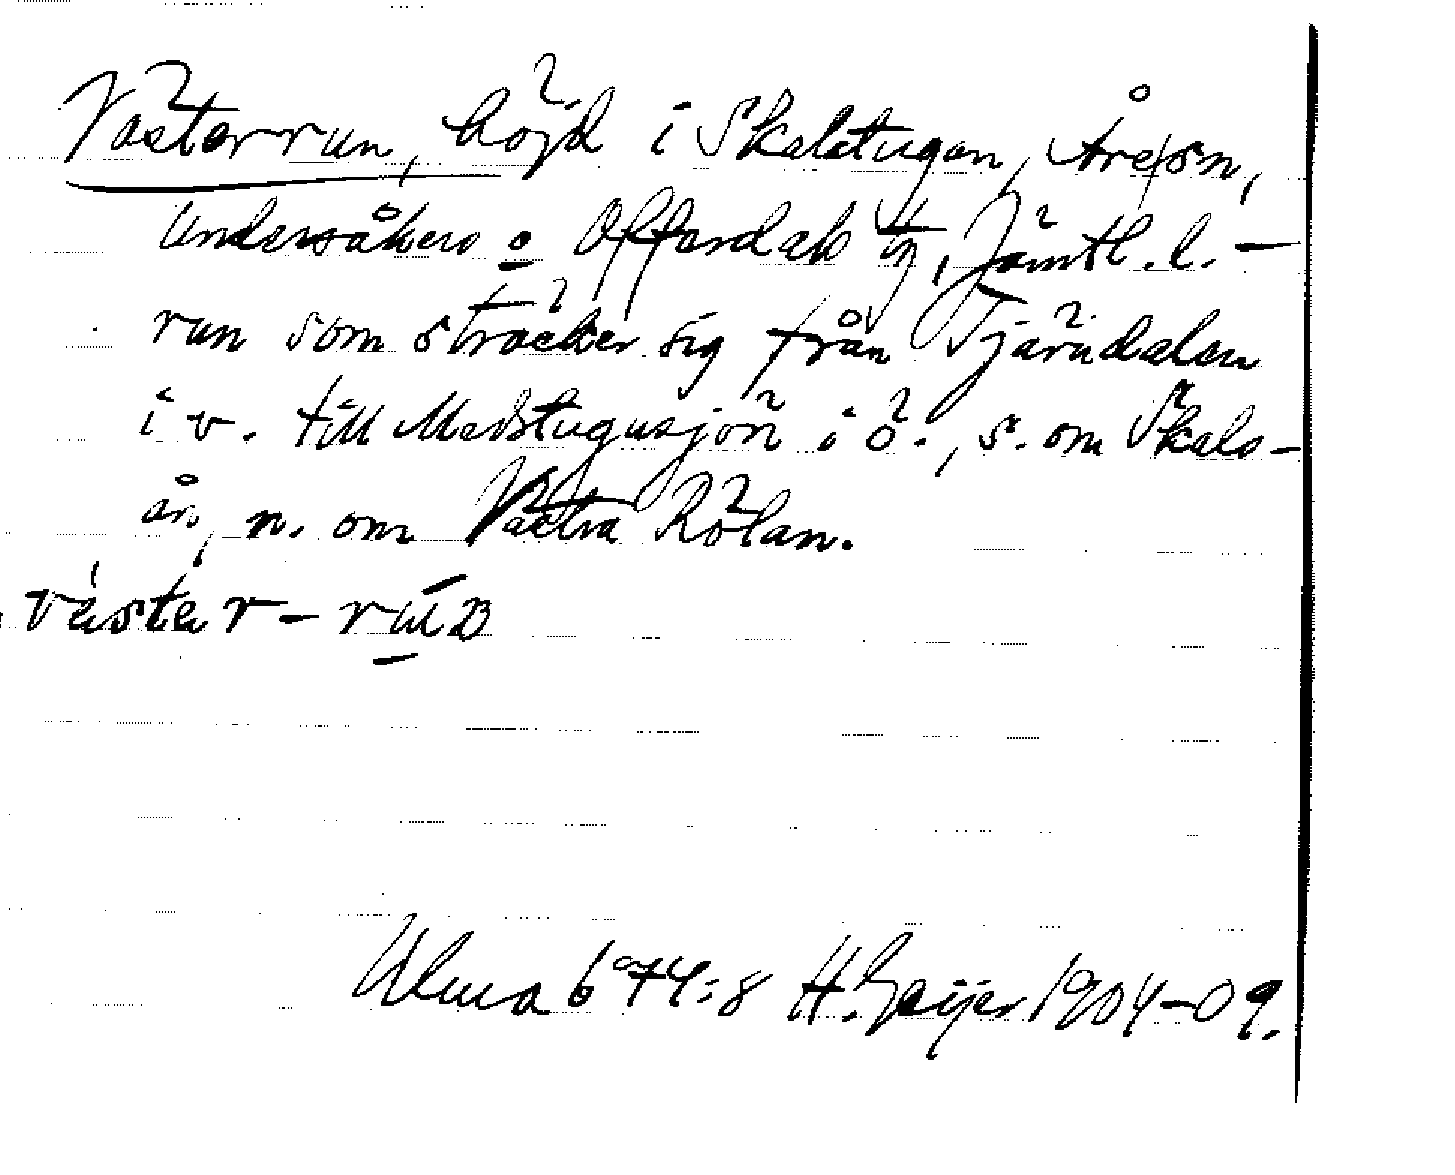 Västerrun, höjd i Skalstugan, Åre sn,
Undersåkers o Offerdals tg, Jämtl. l. —
run som sträcker sig från Tjärndalen
i v. till Medstugusjön i ö., s. om Skals-
ån, n. om Västra Rölan.
väster-
Ulma 674:8 H. Geijer 1904-09.